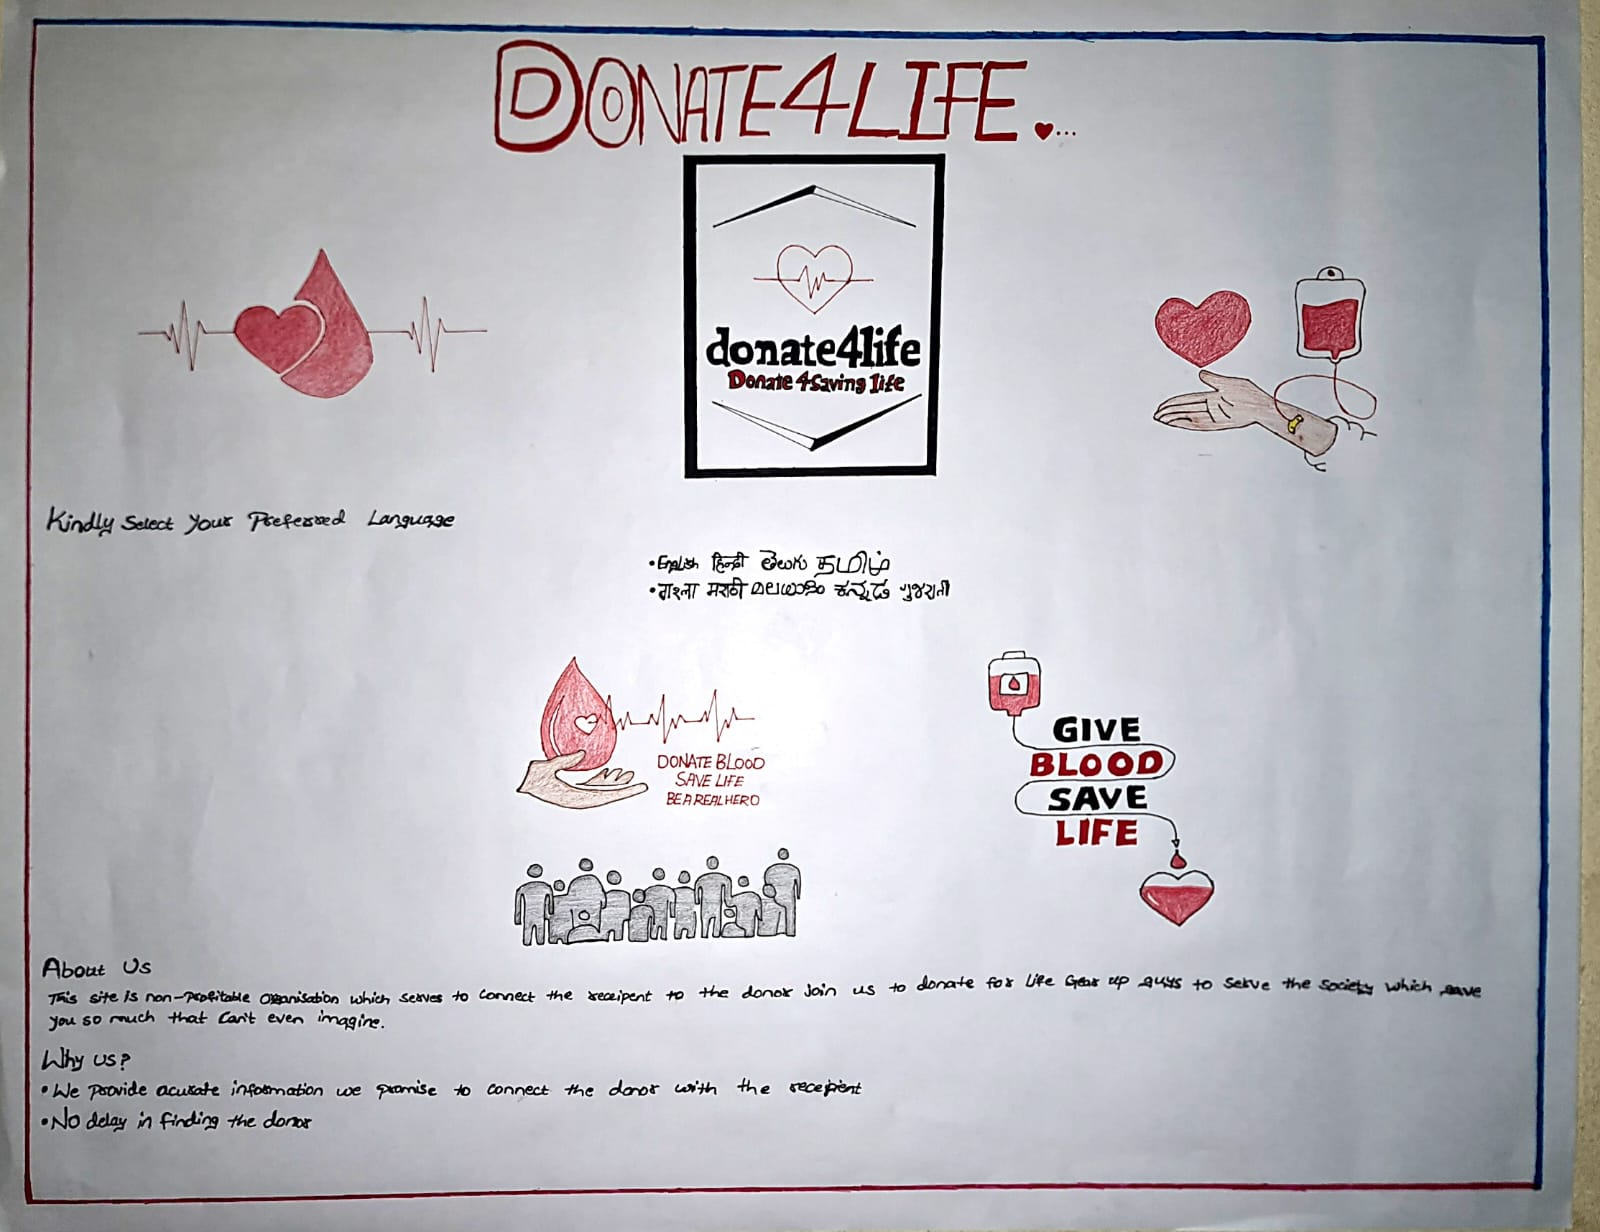 DONATE4LIFE. ...
donate4life
Donate 4Saving life
Kindly Select Your Preferred Language
•English हिन्दी తెలుగు தமிழ்
•বাংলা मराठी മലയാളം ಕನ್ನಡ ગુજરાતી
DONATE BLOOD
SAVE LIFE
BE A REAL HERO
GIVE
BLOOD
SAVE
LIFE
About Us
This site is non-Profitable Organisation which serves to connect the receipent to the donor Join us to donate for Life Gear up guys to serve the society which gave
you so much that can't even imagine.
Why us?
•We Provide acurate information we promise to connect the donor with the receipient
•No delay in finding the donor